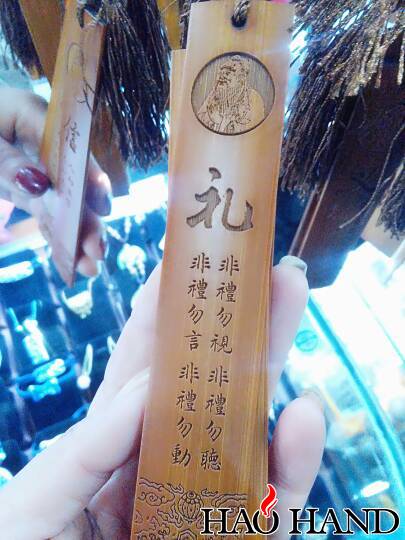 礼
非禮勿視 非禮勿聽
非禮勿言 非禮勿動
信
HAO HAND